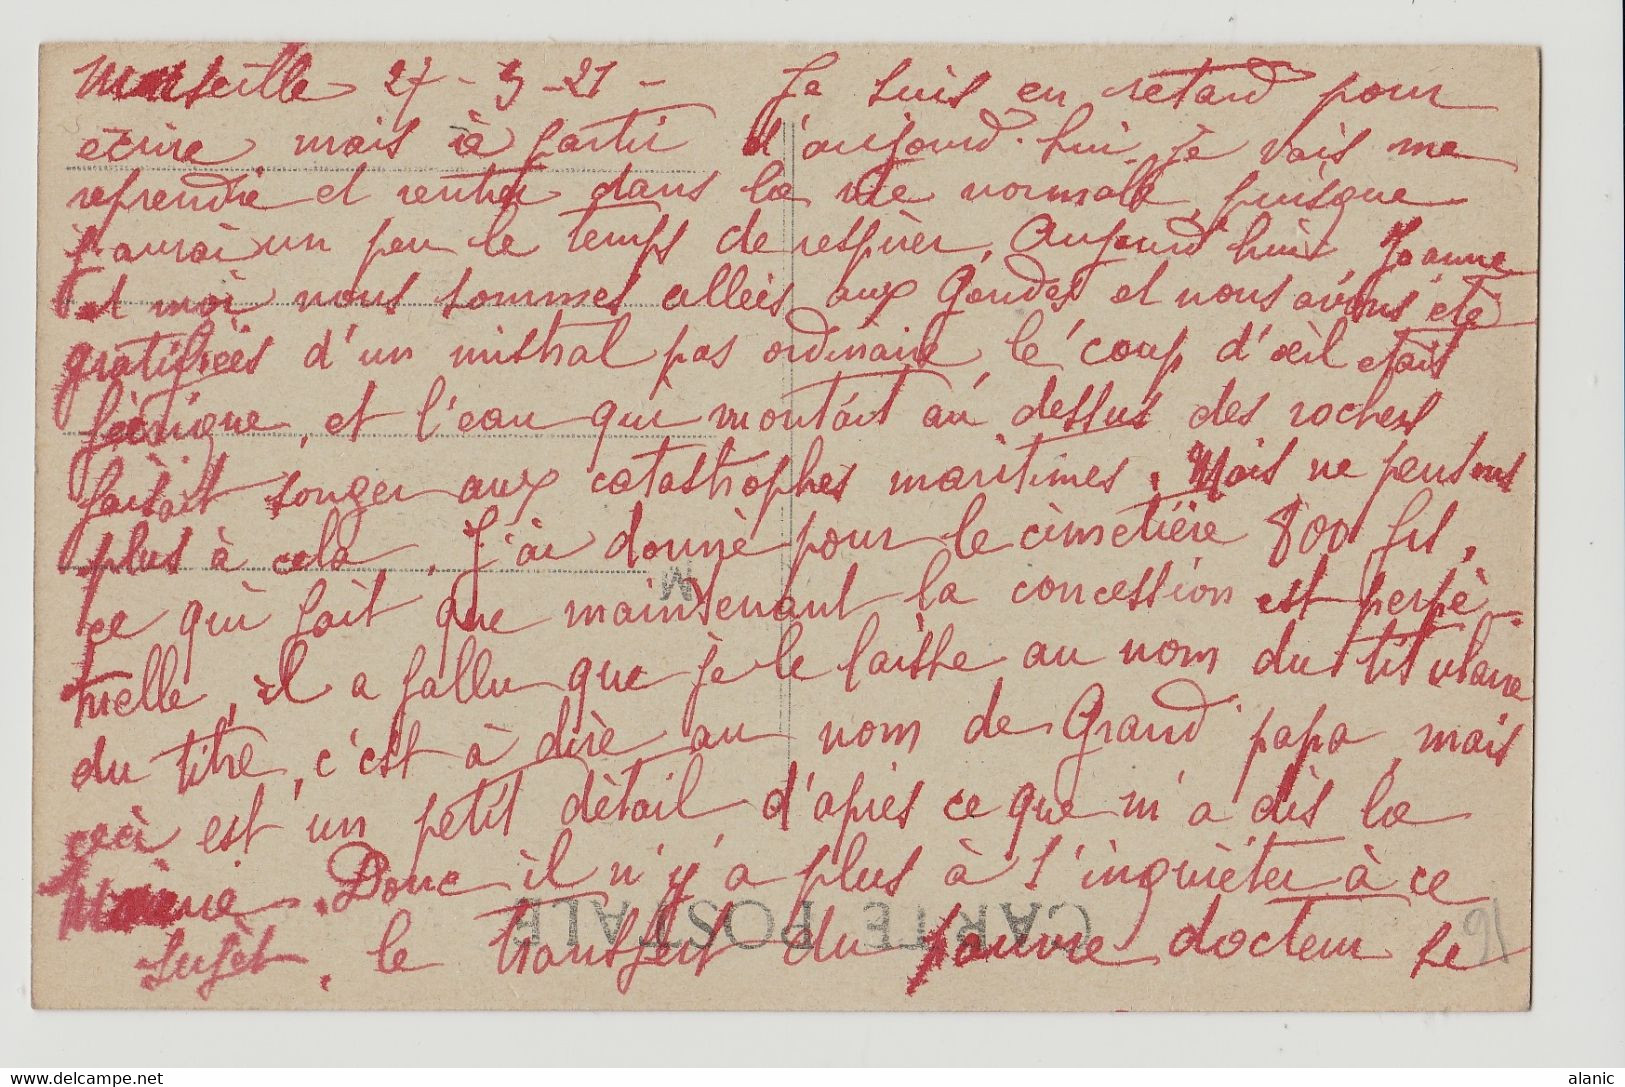 Marseille 27 - 3 - 21 - Je suis en retard pour
écrire mais à partir d'aujourd'hui je vais me
reprendre et rentrer dans la vie normale, puisque
j'aurai un peu le temps de respirer. Aujourd'hui Jeanne
et moi nous sommes allées aux Goudes et nous avons été
gratifiées d'un mistral pas ordinaire, le coup d'œil était
féerique, et l'eau qui montait au dessus des rochers
faisait songer aux catastrophes maritimes. Mais ne pensons
plus à cela. J'ai donné pour le cimetière 800 frs,
ce qui fait que maintenant la concession est perpé-
tuelle, il a fallu que je le laisse au nom du titulaire
du titre, c'est à dire au nom de Grand papa, mais
ceci est un petit détail d'après ce que m'a dis la
. Donc il n'y a plus à s'inquiéter à ce
sujet, le transfert du pauvre docteur se
CARTE POSTALE
M
91
alanic
www.delcampe.net